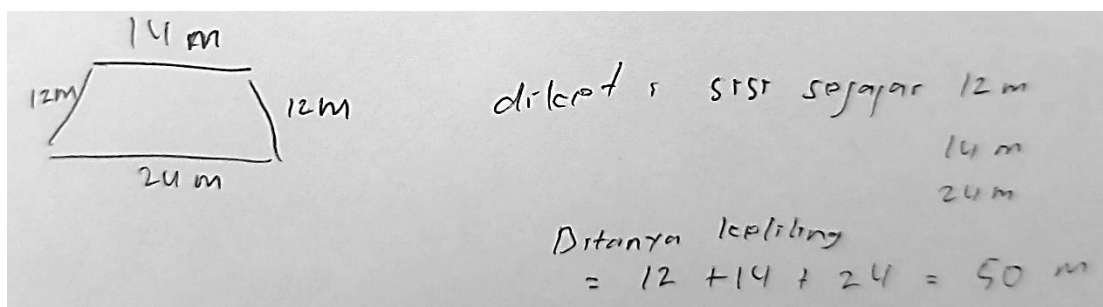 14 m
12m
12m
24 m
diket : sisi sejajar 12 m
14 m
24 m
Ditanya keliling
= 12 + 14 + 24 = 50 m